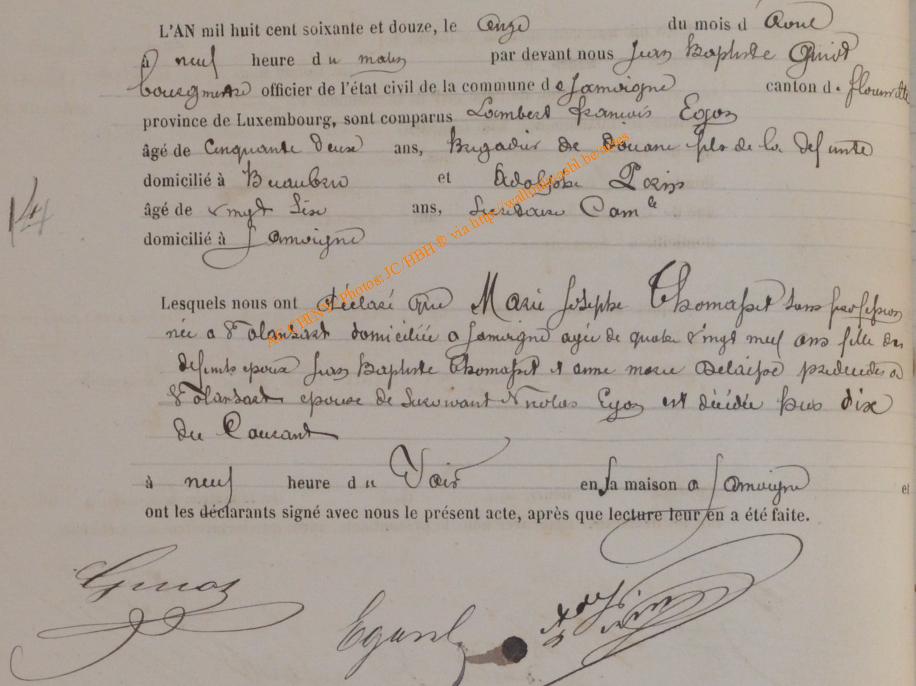 L'AN mil huit cent soixante et douze, le onze du mois d Avril
à neuf heure du matin par devant nous Jean Baptiste Guiot
bourgmestre officier de l'état civil de la commune de Jamoigne canton de florenville
province de Luxembourg, sont comparus Lambert françois Egon
âgé de Cinquante deux ans, Brigadier de Douane fils de la defunte
domicilié à et Adolphe
âgé de vingt Six ans, Secretaire Com le
domicilié à Jamoigne
14
Lesquels nous ont déclaré que Marie Josephe Thomasset Sans profession
née a domiciliée a Jamoigne agée de quatre vingt neuf ans fille des
defunts epoux Jean Baptiste Thomasset et anne marie decedés a
epouse de Survivant Nicolas Egon est décédée hier dix
du Courant
à neuf heure du Soir en sa maison a Jamoigne et
ont les déclarants signé avec nous le présent acte, après que lecture leur en a été faite.
Guiot
ARCHIVES Photos: JC/HBH ® via http://wallonia-asbl.be.sites